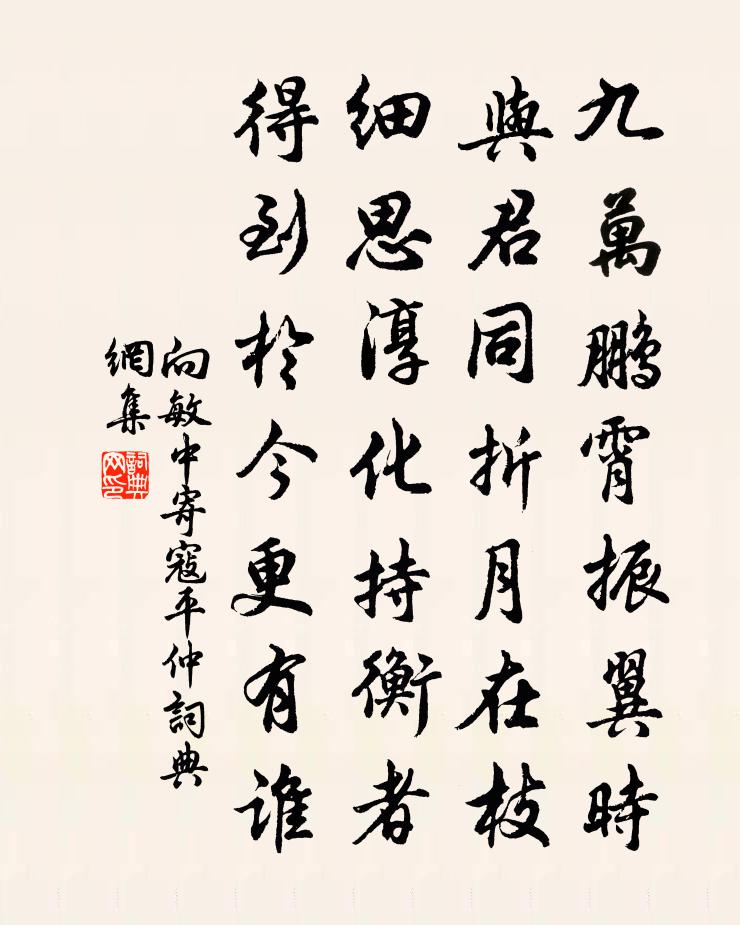 九萬鵬霄振翼時
與君同折月在枝
細思淳化持衡者
得到於今更有誰
向敏中寄寇平仲詞典
網集
詞典
网印